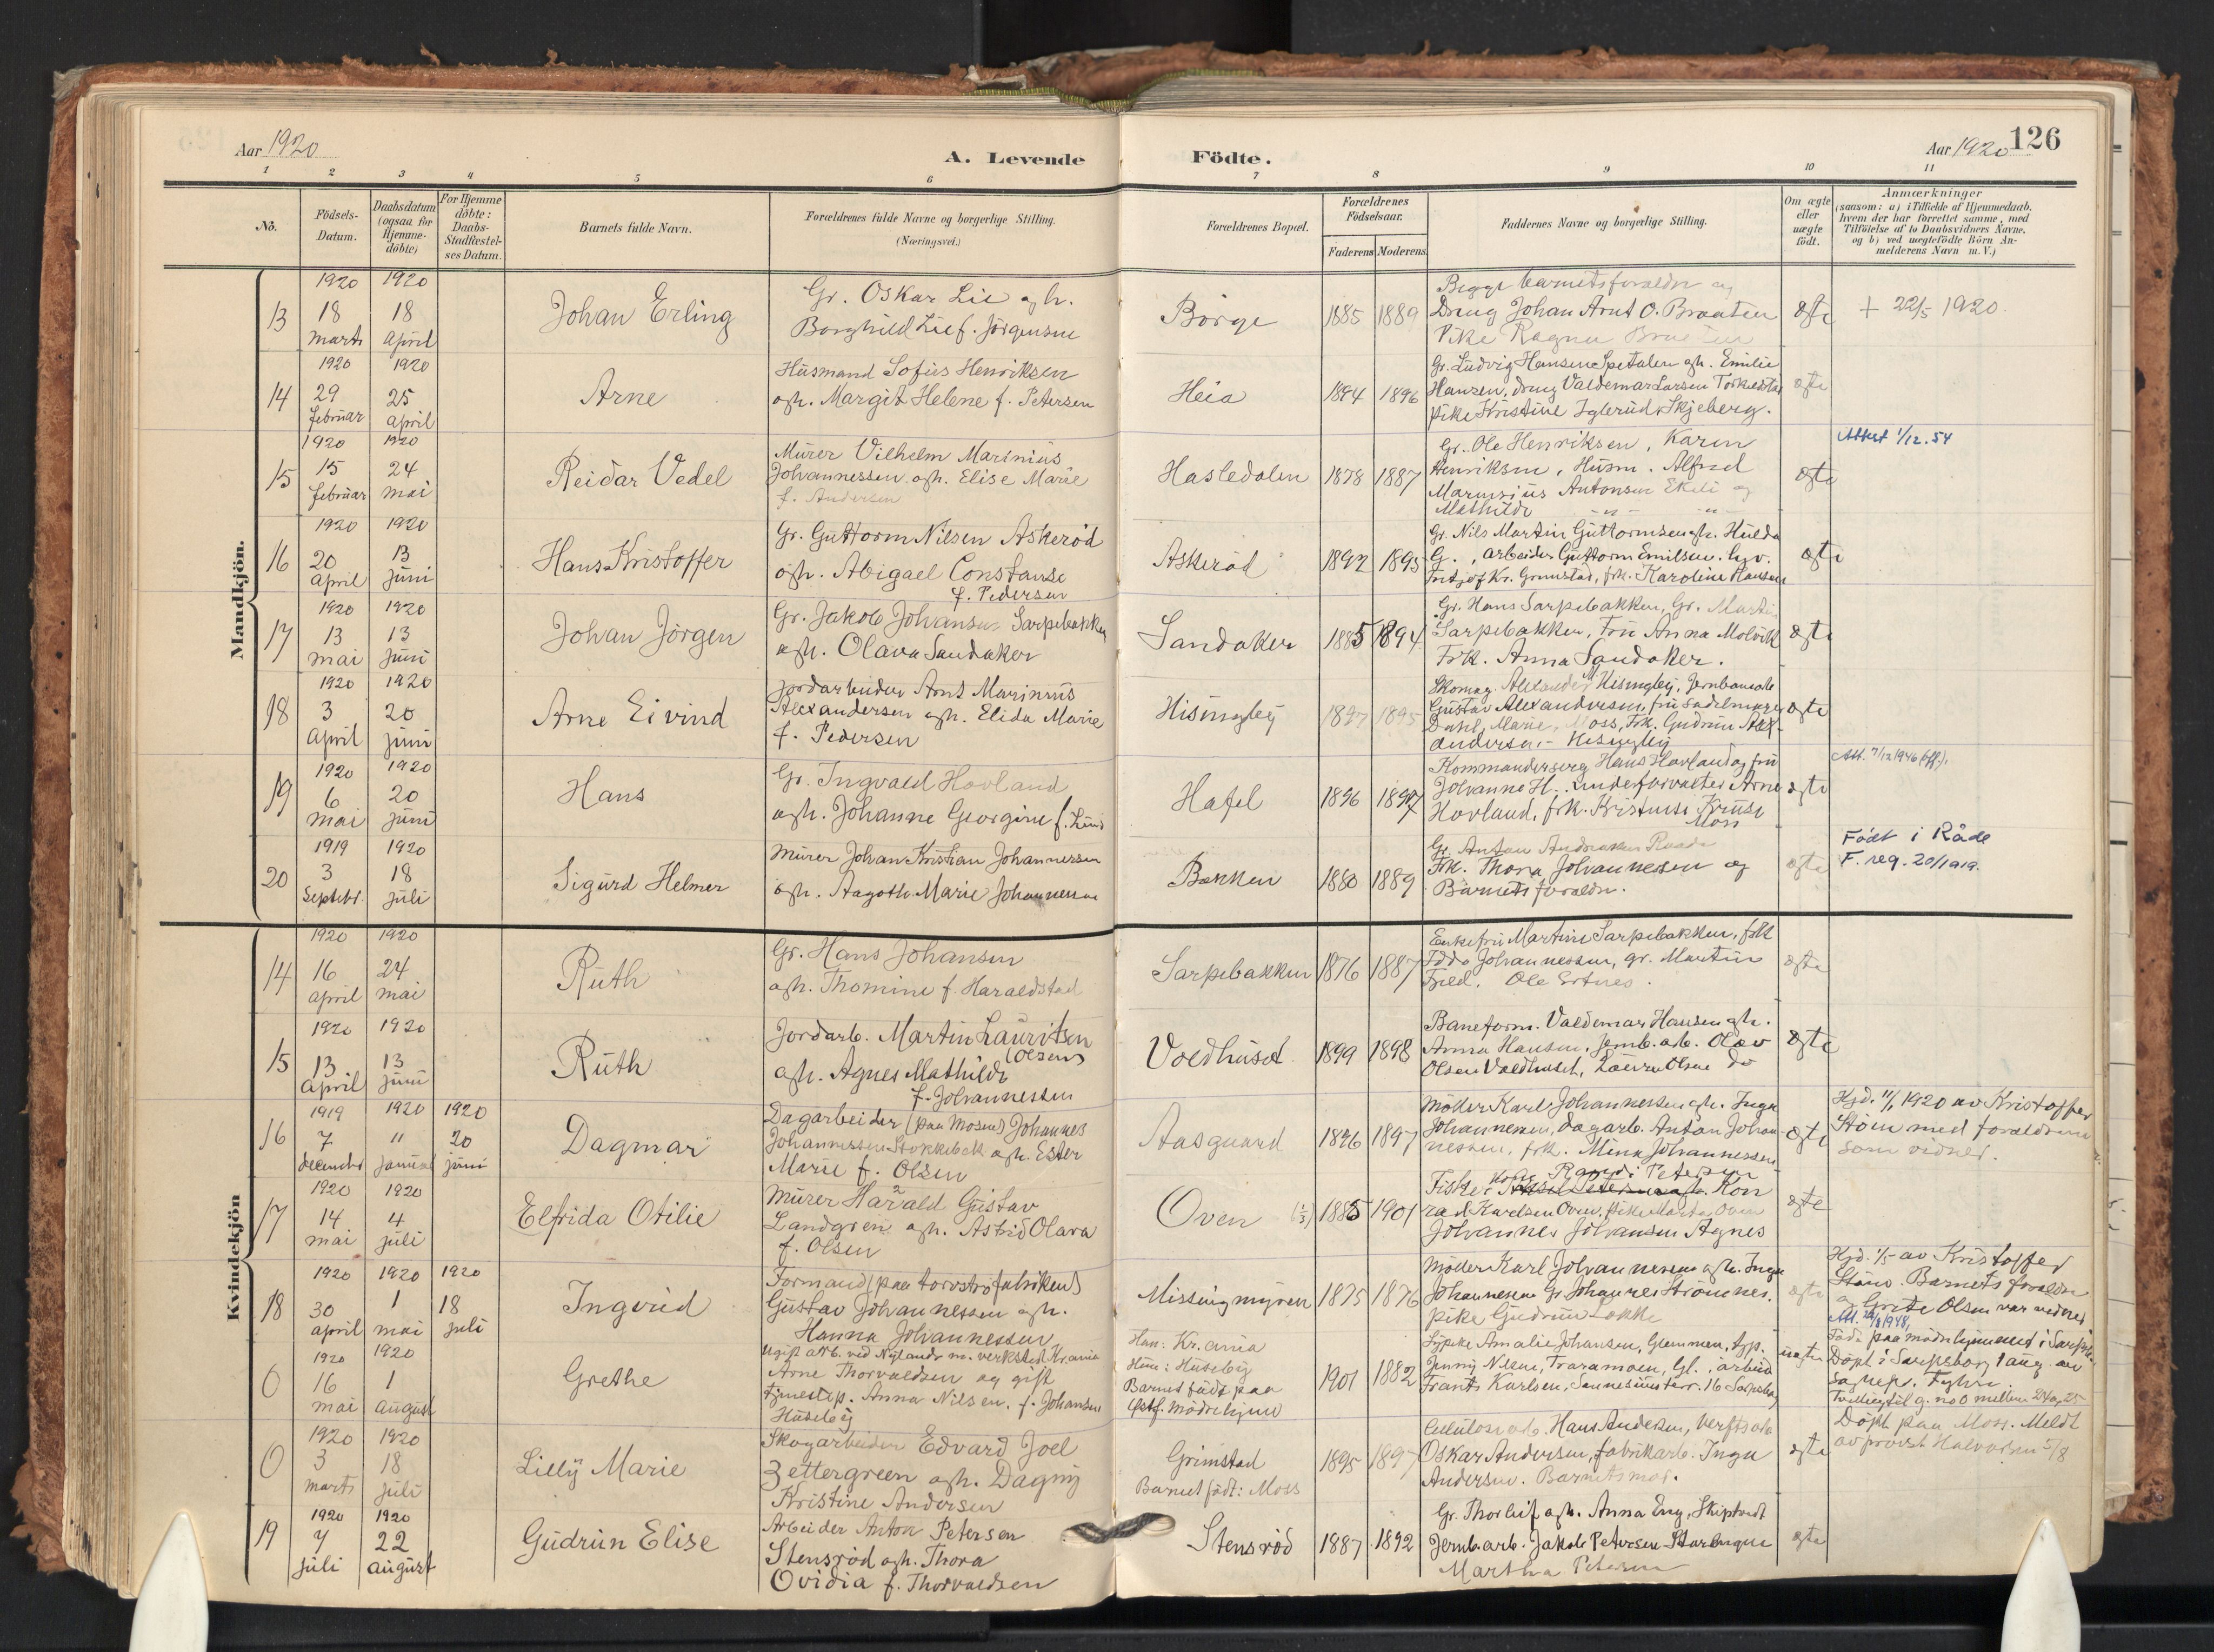 Aar 1920
A. Levende
Födte.
Aar 1920
126
1 2 3 4 5 6 7 8 9 10 11
No.
Födsels-
Datum.
Daabsdatum
(ogsaa for
Hjemme-
döbte)
For Hjemme
döbte:
Daabs-
Stadfæstel-
ses Datum.
Barnets fulde Navn.
Forældrenes fulde Navne og borgerlige Stilling.
(Næringsvei.)
Forældrenes Bopæl.
Forældrenes
Födselsaar.
Faderens Moderens
Faddernes Navne og borgerlige Stilling.
Om ægte
eller
uægte
födt.
Anmærkninger
(saasom: a) i Tilfælde af Hjemmedaab.
hvem der har forrettet samme, med
Tilföielse af to Daabsvidners Navne.
og b) ved uægtefödte Börn An-
melderens Navn m. V.)
Mandkjön.
13
1920
18
marts
1920
18
april
Johan Erling
Gr. Oskar Lie og h.
Borghild Lie f. Jörgensen
Börge
1885 1889
Begge barnets foraldre og
Dreng Johan Arnt O. Braaten
Pike Ragna Braaten
ægte
+ 22/5 1920.
14
1920
29
februar
1920
25
april
Arne
Husmand Sofus Henriksen
ogh. Margit Helene f. Petersen
Heia
1894 1896
Gr. Ludvig Hansen Spetalen ogh. Emilie
Hansen, dreng Valdemar Larsen
pike Kristine Iglerud Skjeberg.
ægte
15
1920
15
februar
1920
24
mai
Reidar Vedel
Murer Vilhelm Marinius
Johannessen ogh. Elise Marie
f. Andersen
Hasledalen
1878 1887
Gr. Ole Henriksen, Karen
Henriksen, Husm. Alfred
Marinius Antonsen Ekeli og
Mathilde -"- -"-
ægte
Attest 1/12.54
16
1920
20
april
1920
13
juni
Hans Kristoffer
Gr. Guttorm Nilsen Askeröd
ogh. Abigael Constanse
f. Pedersen
Askeröd
1892 1895
Gr. Nils Martin Guttormsen ogh. Hulda
G., arbeider Guttorm Emilsen.
Fritjof Kr. Grimstad, frk. Karoline Hansen
ægte
17
1920
13
mai
1920
13
juni
Johan Jörgen
Gr. Jakob Johansen Sarpebakken
ogh. Olava Sandaker
Sandaker
1885 1894
Gr. Hans Sarpebakken, Gr. Martin
Sarpebakken, Fru Anna Molvik
Frk. Anna Sandaker.
ægte
18
1920
3
april
1920
20
juni
Arne Eivind
jordarbeider Arnt Marinius
Alexandersen ogh. Elida Marie
f. Pedersen
Hisingböy
1897 1895
Skomag. Alexander Hisingböy, Jernbanearb
Gustav Alexandersen, fru sadelmager
Dahl, Marie, Moss, Frk. Gudrun Alex-
andersen - Hisingböy
ægte
19
1920
6
mai
1920
20
juni
Hans
Gr. Ingvald Hovland
ogh. Johanne Georgine f. Lund
Hafel
1896 1897
Kommandersergt Hans Hovland og fru
Johanne H., underforvalter Arne
Hovland, frk. Kristense Kruse
Moss
ægte
Att. 7/12 1946 (off).
20
1919
3
Septebr.
1920
18
juli
Sigurd Helmer
Murer Johan Kristian Johannessen
ogh. Aagoth Marie Johannessen
Bakken
1880 1889
Gr. Anton Andreasen Raade
Frk. Thora Johannessen og
Barnets foraldre.
ægte
Födt i Råde
F. reg. 20/1919.
Kvindekjön
14
1920
16
april
1920
24
mai
Ruth
Gr. Hans Johansen
ogh. Thomine f. Haraldstad
Sarpebakken
1876 1887
Enkefru Martine Sarpebakken, frk
Edda Johannessen, gr. Martin
Ole
ægte
15
1920
13
april
1920
13
juni
Ruth
Jordarb. Martin Lauritsen
(Olsen)
ogh. Agnes Mathilde
f. Johannessen
Voldhuset
1899 1898
Baneform. Valdemar Hansen ogh.
Anna Hansen, Jernb. arb. Olav
Olsen Voldhuset, Laura Olsen do
ægte
16
1919
7
decembr
1920
11
januar
1920
20
juni
Dagmar
Dagarbeider (paa Mosen) Johannes
Johannessen Stokkebæk ogh. Ester
Marie f. Olsen
Aasgaard
1896 1897
Möller Karl Johannessen ogh. Inga
Johannessen, dagarb. Anton Johan-
nessen, frk. Mina Johannessen
ægte
Hjd. 11/1 1920 av Kristoffer
Stöm med foraldrene
som vidner.
17
1920
14
mai
1920
4
juli
Elfrida Otilie
Murer Harald Gustav
Landgren ogh. Astrid Olava
f. Olsen
Oven
1885 1901
Kone Randi Petersen
Fisker Kon
rad Karlsen Oven, pike Marta Oven
Johannes Johansen Agnes
ægte
18
1920
30
april
1920
1
mai
1920
18
juli
Ingrid
Formand (paa torvströfabriken)
Gustav Johannessen ogh.
Hanna Johannessen
Missingmyren
1875 1876
Möller Karl Johannessen ogh. Inga
Johannessen Gr. Johannes Strömnes.
pike Gudrun Løkke
ægte
Hjd. 1/5 av Kristoffer
Stöm. Barnets foraldre
og Grete Olsen var vidner
0
1920
16
mai
1920
1
august
Grethe
ugift arb. ved Nylands m. verksted Kr.ania
Arne Thorvaldsen og gift
tjenestep. Anna Nilsen, f. Johansen
Huseböy
Han: Kr.ania
Hun: Huseböy
Barnet födt paa
mödrehjem
1901 1882
Sypike Amalie Johansen, Glemmen, typ.
Jenny Nilsen, Traramoen, Gl., arbeid.
Frants Karlsen, Sannesundsterr. 16 Sarpsborg
uægte
Att. 1948,
Födt paa mödrehjemmet i Sarpsb.
Döpt i Sarpsborg 1 aug. av
sognepr. Tyhn.
0
1920
3
marts
1920
18
juli
Lilly Marie
Skogarbeider Edvard Joel
Zettergreen ogh. Dagny
Kristine Andersen
Grimstad
Barnet födt: Moss
1895 1897
Cellulosearb. Hans Andersen, Verftsarb
Oskar Andersen, fabrikarb. Inga
Andersen. Barnets mor.
ægte
Döpt paa Moss. Meldt
av provst Halvorsen 5/8
19
1920
7
juli
1920
22
august
Gudrun Elise
Arbeider Anton Petersen
Stensröd ogh. Thora
Ovidia f. Thorvaldsen
Stensröd
1887 1892
Gr. Thorleif ogh. Anna Eng, Skiptvedt
Jernb.arb. Jakob Petersen
Martha Petersen
ægte